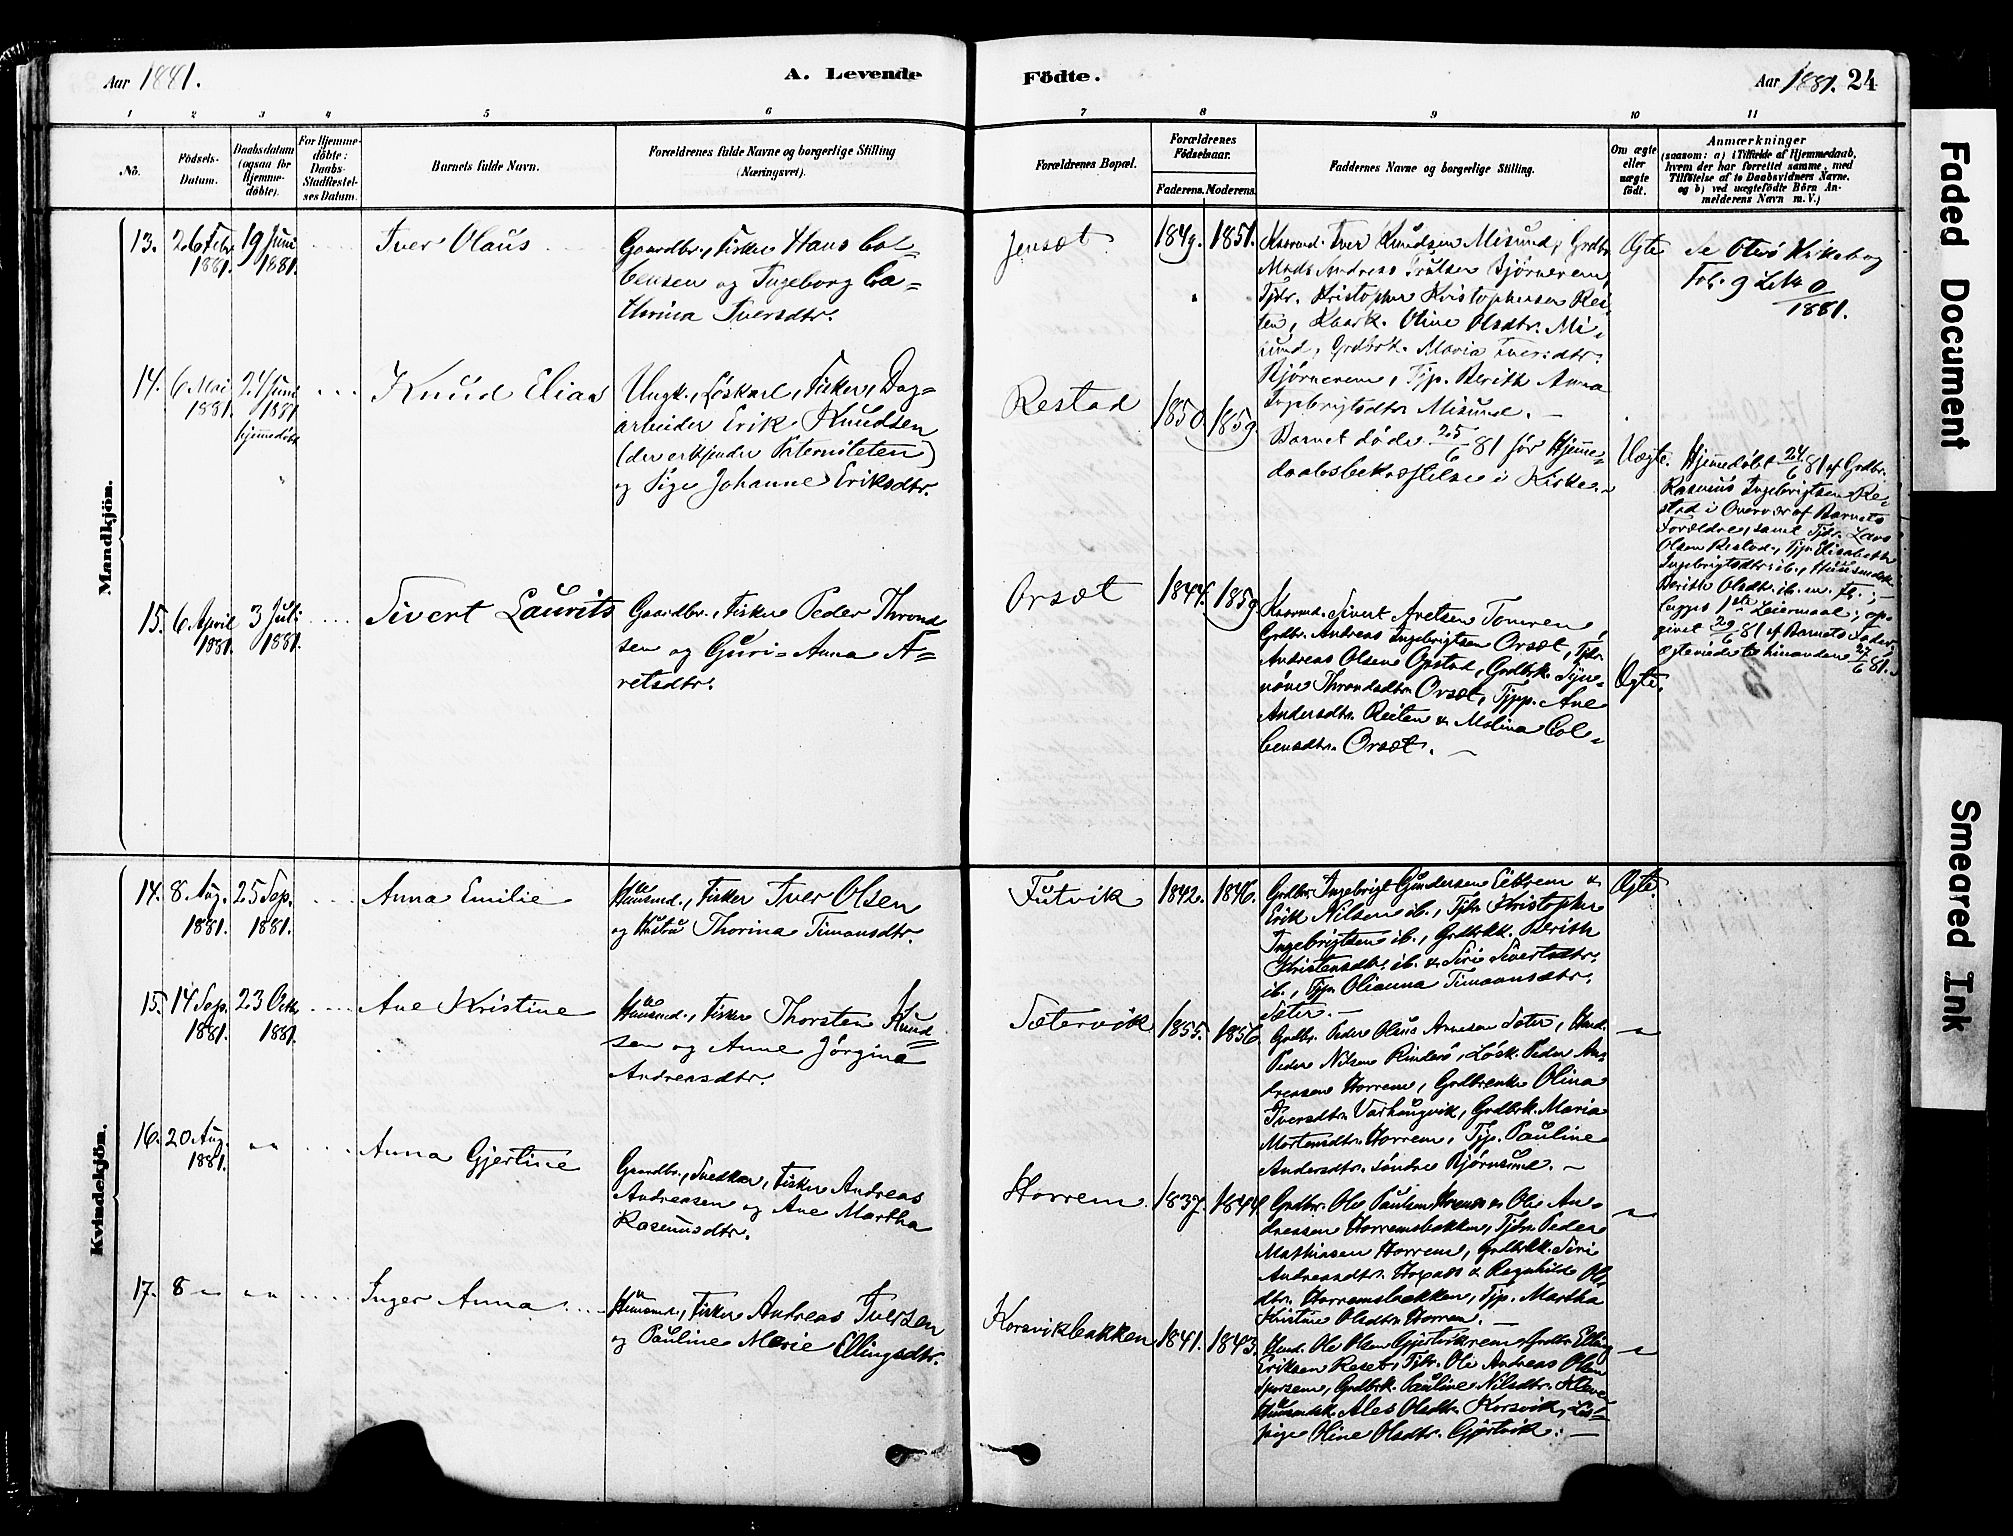 Aar 1881.
A. Levende
Födte.
Aar 1881. 24
1 2 3 4 5 6 7 8 9 10 11
No.
Födsels-
Datum.
Daabsdatum
(ogsaa for
Hjemme-
döbte).
For Hjemme-
döbte:
Daabs-
Stadfæstel-
ses Datum.
Barnets fulde Navn.
Forældrenes fulde Navne og borgerlige Stilling
(Næringsvei).
Forældrenes Bopæl.
Forældrenes
Födselsaar.
Faderens. Moderens.
Faddernes Navne og borgerlige Stilling.
Om ægte
eller
uægte
födt.
Anmærkninger
(saasom: a) i Tilfælde af Hjemmedaab,
hvem der har forrettet samme, med
Tilföielse af to Daabsvidners Navne,
og b) ved uægtefödte Börn An-
melderens Navn m. V.)
Mandkjön.
13. 26 Febr
1881. 19 Juni
1881.
Iver Olaus
Gaardbr., Fisker Hans Col-
bensen og Ingeborg Ca-
thrina Iversdtr.
Jensæt
1849. 1851.
Kaarmd. Iver Knudsen Misund, Grdbr.
Mads Andreas Trulsen Bjørnerem,
Tjdr. Kristopher Kristophersen Rei-
ten, Kaark. Oline Olsdtr. Mi-
sund, Grdbrk. Maria Iversdtr.
Bjørnerem, Tjp. Berith Anna
Ingebrigtsdtr. Misund. —
Ægte
Se Oterø Kirkebog
Fol. 9 Lit. 0
1881.
14. 6 Mai
1881. 24 Juni
1881
hjemmedöbt
Knud Elias
Ungk., Löskarl, Fisker, Dag-
arbeider Erik Knudsen
(der erkjender Paterniteten)
og Pige Johanne Eriksdtr.
Restad
1850. 1859.
Barnet døde 25/6 81 før Hjemme-
daabsbekræftelse i Kirken.
Uægte.
Hjemmedøbt 24/6 81 af Grdbr.
Rasmus Ingebrigtsen Re-
stad i Overvær af Barnets
Forældre, samt Tjdr. Lars
Olsen Restad, Tjp. Elisabeth
Ingebrigtsdtr. ib., Huusmdsk.
Berith Olsdtr. ib. m. fl.;
begges 1ste Leiermaal; op-
givet 29/6 81 af Barnets Fader,
ægteviede til hinanden 27/6 81.
15. 6 April
1881. 3 Juli
1881.
Sivert Laurits
Gaardbr., Fisker Peder Thrond
sen og Guri-Anna A-
retsdtr.
Orsæt
1844. 1859.
Kaarmd. Sivert Aretsen Tomren,
Grdbr. Andreas Ingebrigtsen Orsæt, Tjdr.
Andreas Olsen Opstad, Grdbrk. Syn-
nøve Throndsdtr. Orsæt, Tjpp. Ane
Andersdtr. Reiten & Molina Col-
bensdtr. Orsæt. —
Ægte.
Kvindekjön.
14. 8 Aug.
1881. 25 Sep.
1881.
Anna Emilie
Huusmd., Fisker Iver Olsen
og Hustru Thorina Timansdtr.
Futvik
1842. 1846.
Grdbr. Ingebrigt Gundersen Eibtrem &
Erik Nilsen ib., Tjdr. Kristopher
Ingebrigtsen ib., Grdbrkk. Berith
Kristensdtr. ib. & Siri Sivertsdtr.
ib., Tjp. Olianna Timansdtr.
Sæter. —
Ægte.
15. 14 Sep.
1881. 23 Octb.
1881.
Ane Kristine
Huusmd., Fisker Thorsten Knud-
sen og Anne Jørgina
Andreasdtr.
Sætervik
1855. 1856.
Grdbr. Peder Olaus Arnesen Sæter, Hmd.
Peder Nilsen Rinderö, Løsk. Peder An-
dreasen Horrem, Grdbrenke Olina
Iversdtr. Varhaugvik, Grdbrk. Maria
Mortensdtr. Horrem, Tjp. Pauline
Andersdtr. søndre Bjørnsund. —
— „ —
16. 20 Aug.
1881. „ „
Anna Gjertine
Gaardbr., Snedker, Fisker Andreas
Andreassen og Ane Martha
Rasmusdtr.
Horrem
1837. 1844.
Grdbr. Ole Paulsen Horrem & Ole An-
dreassen Horremsbakken, Tjdr. Peder
Mathiasen Horrem, Grdbrkk. Siri
Andreasdtr. & Ragnhilde Ols-
dtr. Horremsbakken, Tjp. Martha
Kristine Olsdtr. Horrem. —
— „ —
17. 8 — „ „ „
Inger Anna
Huusmd., Fisker Andreas Iversen
og Pauline Marie Ellingsdtr.
Korsvikbakken
1841. 1843.
Hmd. Ole Olsen Gjørtvikrem, Grdbr. Elling
Eriksen Reset, Tjdr. Ole Andreas Olsen
Grdbrk. Pauline Nilsdtr. Kleve,
Huusmdsk. Ales Olsdtr. Korsvik, Løs-
pige Oline Olsdtr. Gjørtvik. —
— „ —
Faded Document
Smeared Ink